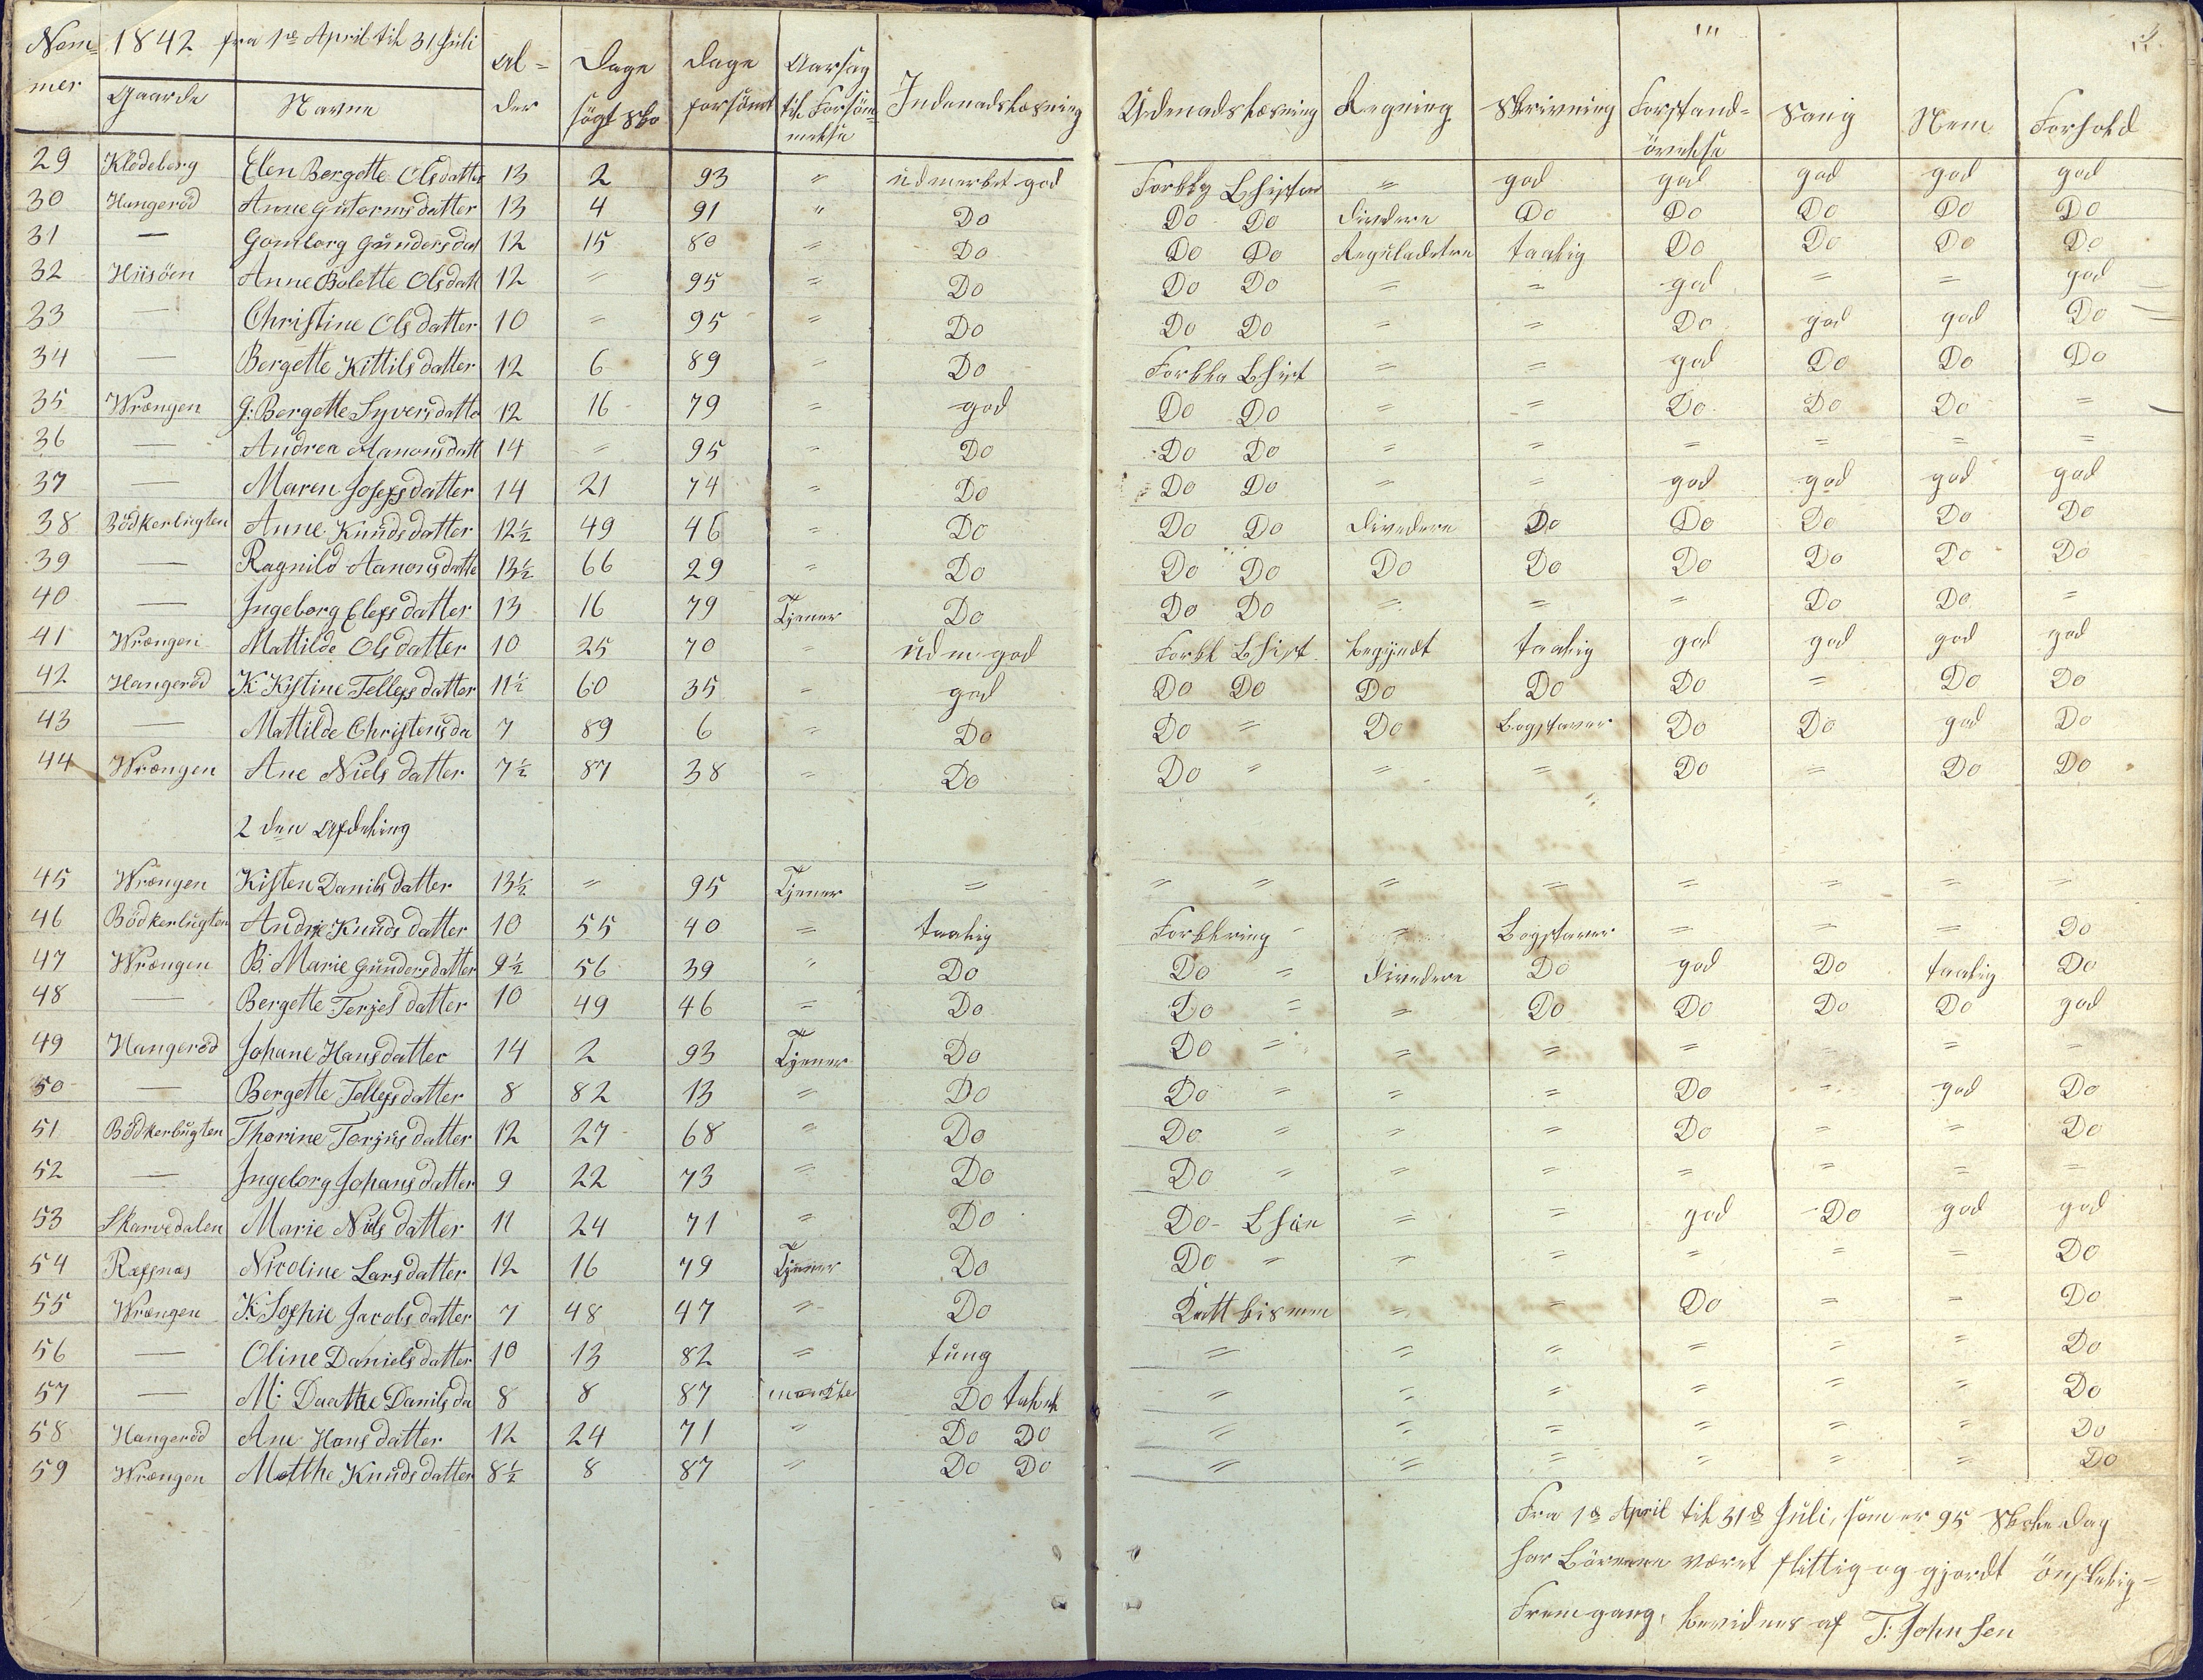 Nom=mer 1842 fra 1te April til 31 Juli Al=der Dage søgt Sko Dage forsømt Aarsag til Forsøm=melse Indenadslæsning Udenadslæsning Regning Skrivning Forstand=øvelse Sang Nem Forhold
Gaarde Navne
29 Klødeberg Elen Bergette Olsdatter 13 2 93 " udmerket god Forklg " god god god god god
30 Hangerød Anne Gutormsdatter 13 4 91 " Do Do Do Dividere Do Do Do Do Do
31 — Gomborg Gundersdat 12 15 80 " Do Do Do Reguladetri taalig Do Do Do Do
32 Hiisøen Anne Bolette Olsdatt 12 " 95 " Do Do Do " " god " " god
33 — Christine Olsdatter 10 " 95 " Do Do Do " " Do god god Do
34 — Bergette Kittilsdatter 12 6 89 " Do Forkla Lhist " " god Do Do Do
35 Wrængen G: Bergette Syversdatte 12 16 79 " god Do Do " " Do Do Do "
36 — Andrea Aanonsdatt 14 " 95 " Do Do Do " " " " " "
37 — Maren Josefsdatter 14 21 74 " Do Do Do " " god god god god
38 Bödkerbugten Anne Knudsdatter 12½ 49 46 " Do Do Do Dividere Do Do Do Do Do
39 — Ragnild Aanonsdatte 13½ 66 29 " Do Do Do Do Do Do Do Do Do
40 — Ingeborg Elefsdatter 13 16 79 Tjener Do Do Do " " " Do Do "
41 Wrængen Mattilde Olsdatter 10 25 70 " udm god Forkl Lhist begyndt taalig god god god god
42 Hangerød K Kistine Tellefsdatter 11½ 60 35 " god Do Do Do Do Do " Do Do
43 — Mattilde Christensda 7 89 6 " Do Do " Do Bogstaver Do Do god Do
44 Wrængen Ane Nielsdatter 7½ 87 38 " Do Do " " " Do " Do Do
2den Afdeling
45 Wrængen Kisten Danilsdatter 13½ " 95 Tjener " " " " " " " " "
46 Bödkerbugten Andrie Knudsdatter 10 55 40 " taalig Forklring " " Bogstaver " " " Do
47 Wrængen B: Marie Gundersdatter 9½ 56 39 " Do Do " Dividere Do god Do taalig Do
48 — Bergette Terjesdatter 10 49 46 " Do Do " " Do Do Do Do god
49 Hangerød Johane Hansdatter 14 2 93 Tjener Do Do " " " " " " "
50 — Bergette Tellefsdatter 8 82 13 " Do Do " " " Do " god Do
51 Bödkerbugten Thorine Terjusdatter 12 27 68 " Do Do " " " Do " " Do
52 — Ingeborg Johansdatter 9 22 73 " Do Do " " " " " " "
53 Skarvedalen Marie Nilsdatter 11 24 71 " Do Do " " god Do god god
54 Ræfsnæs Nicoline Larsdatter 12 16 79 Tjener Do Do " " " " " " Do
55 Wrængen K: Sophie Jacobsdatter 7 48 47 " Do " " Do " " Do
56 — Oline Danielsdatter 10 13 82 " tung " " " " " " Do
57 — M: Daathe Danilsda 8 8 87 Do " " " " " " Do
58 Hangerød Ane Hansdatter 12 24 71 " Do Do " " " " " " Do
59 Wrængen Matthe Knudsdatter 8½ 8 87 " Do Do " " " " " " Do
Fra 1de April til 31de Juli, som er 95 Skole Dag
har Börnene været flittig og gjordt önskelig=
Fremgang, bevidnes af T: Johnsen